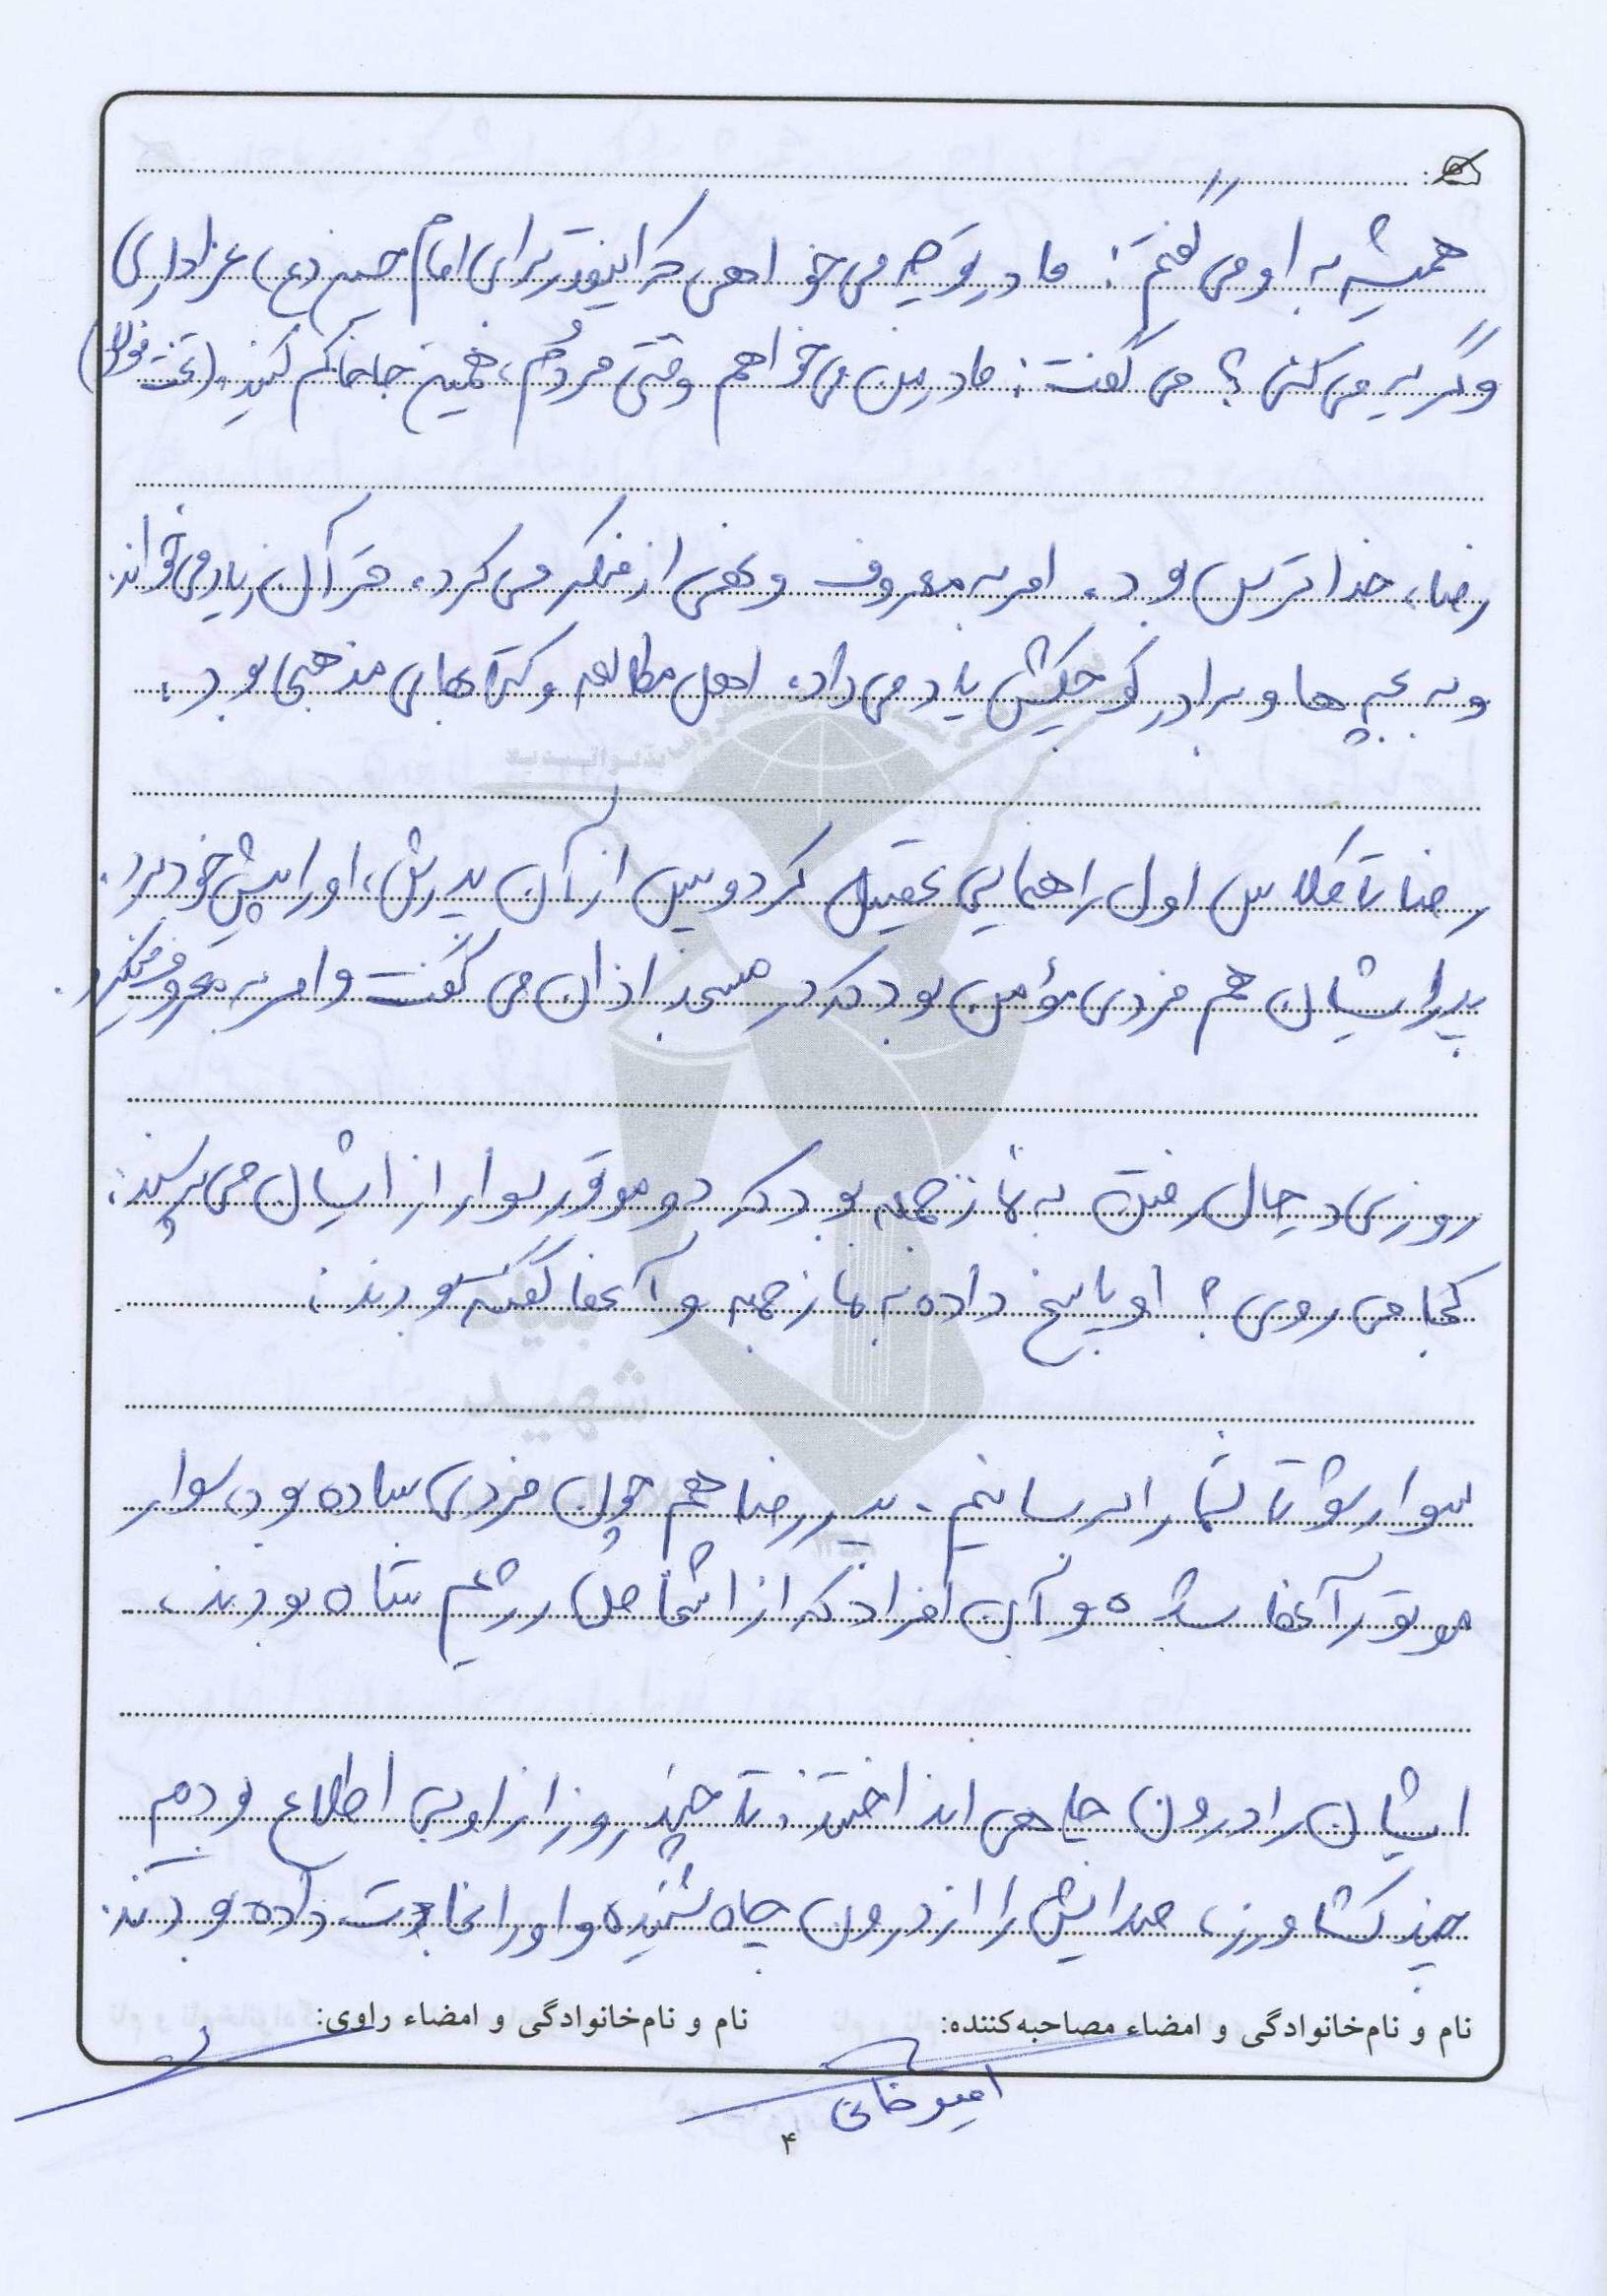 همیشه به او می گفتم: مادر تو چه می خواهی که اینقدر برای امام حسین (ع) عزاداری
و گریه می کنی؟ می گفت: مادر من می خواهم وقتی مُردم، همین جا خاکم کنید. (تخت فولاد)
رضا، خدا ترس بود. امر به معروف و نهی از منکر می کرد. قرآن زیاد می خواند.
و به بچه ها و برادر کوچکش یاد می داد. اهل مطالعه و کتابهای مذهبی بود.
رضا تا کلاس اول راهنمایی تحصیل کرد و پس از آن پدرش، او را پیش خود برد.
پدر ایشان هم فردی مؤمن بود که در مسجد اذان می گفت و امر به معروف میکرد.
روزی در حال رفتن به نماز جمعه بود که دو موتور سوار از ایشان می پرسند:
کجا می روی؟ او پاسخ داده به نماز جمعه و آنها گفته بودند:
سوار شو تا شما را برسانیم. پدر رضا هم چون فردی ساده بود، سوار
موتور آنها شده و آن افراد که از اشخاص رژیم شاه بودند،
ایشان را درون چاهی انداختند. تا چند روز از او بی اطلاع بودیم
چند کشاورز، صدایش را از درون چاه شنیده و او را نجات داده بودند.
نام و نام‌خانوادگی و امضاء مصاحبه‌کننده: نام و نام‌خانوادگی و امضاء راوی:
امیرخانی
۴
شهید